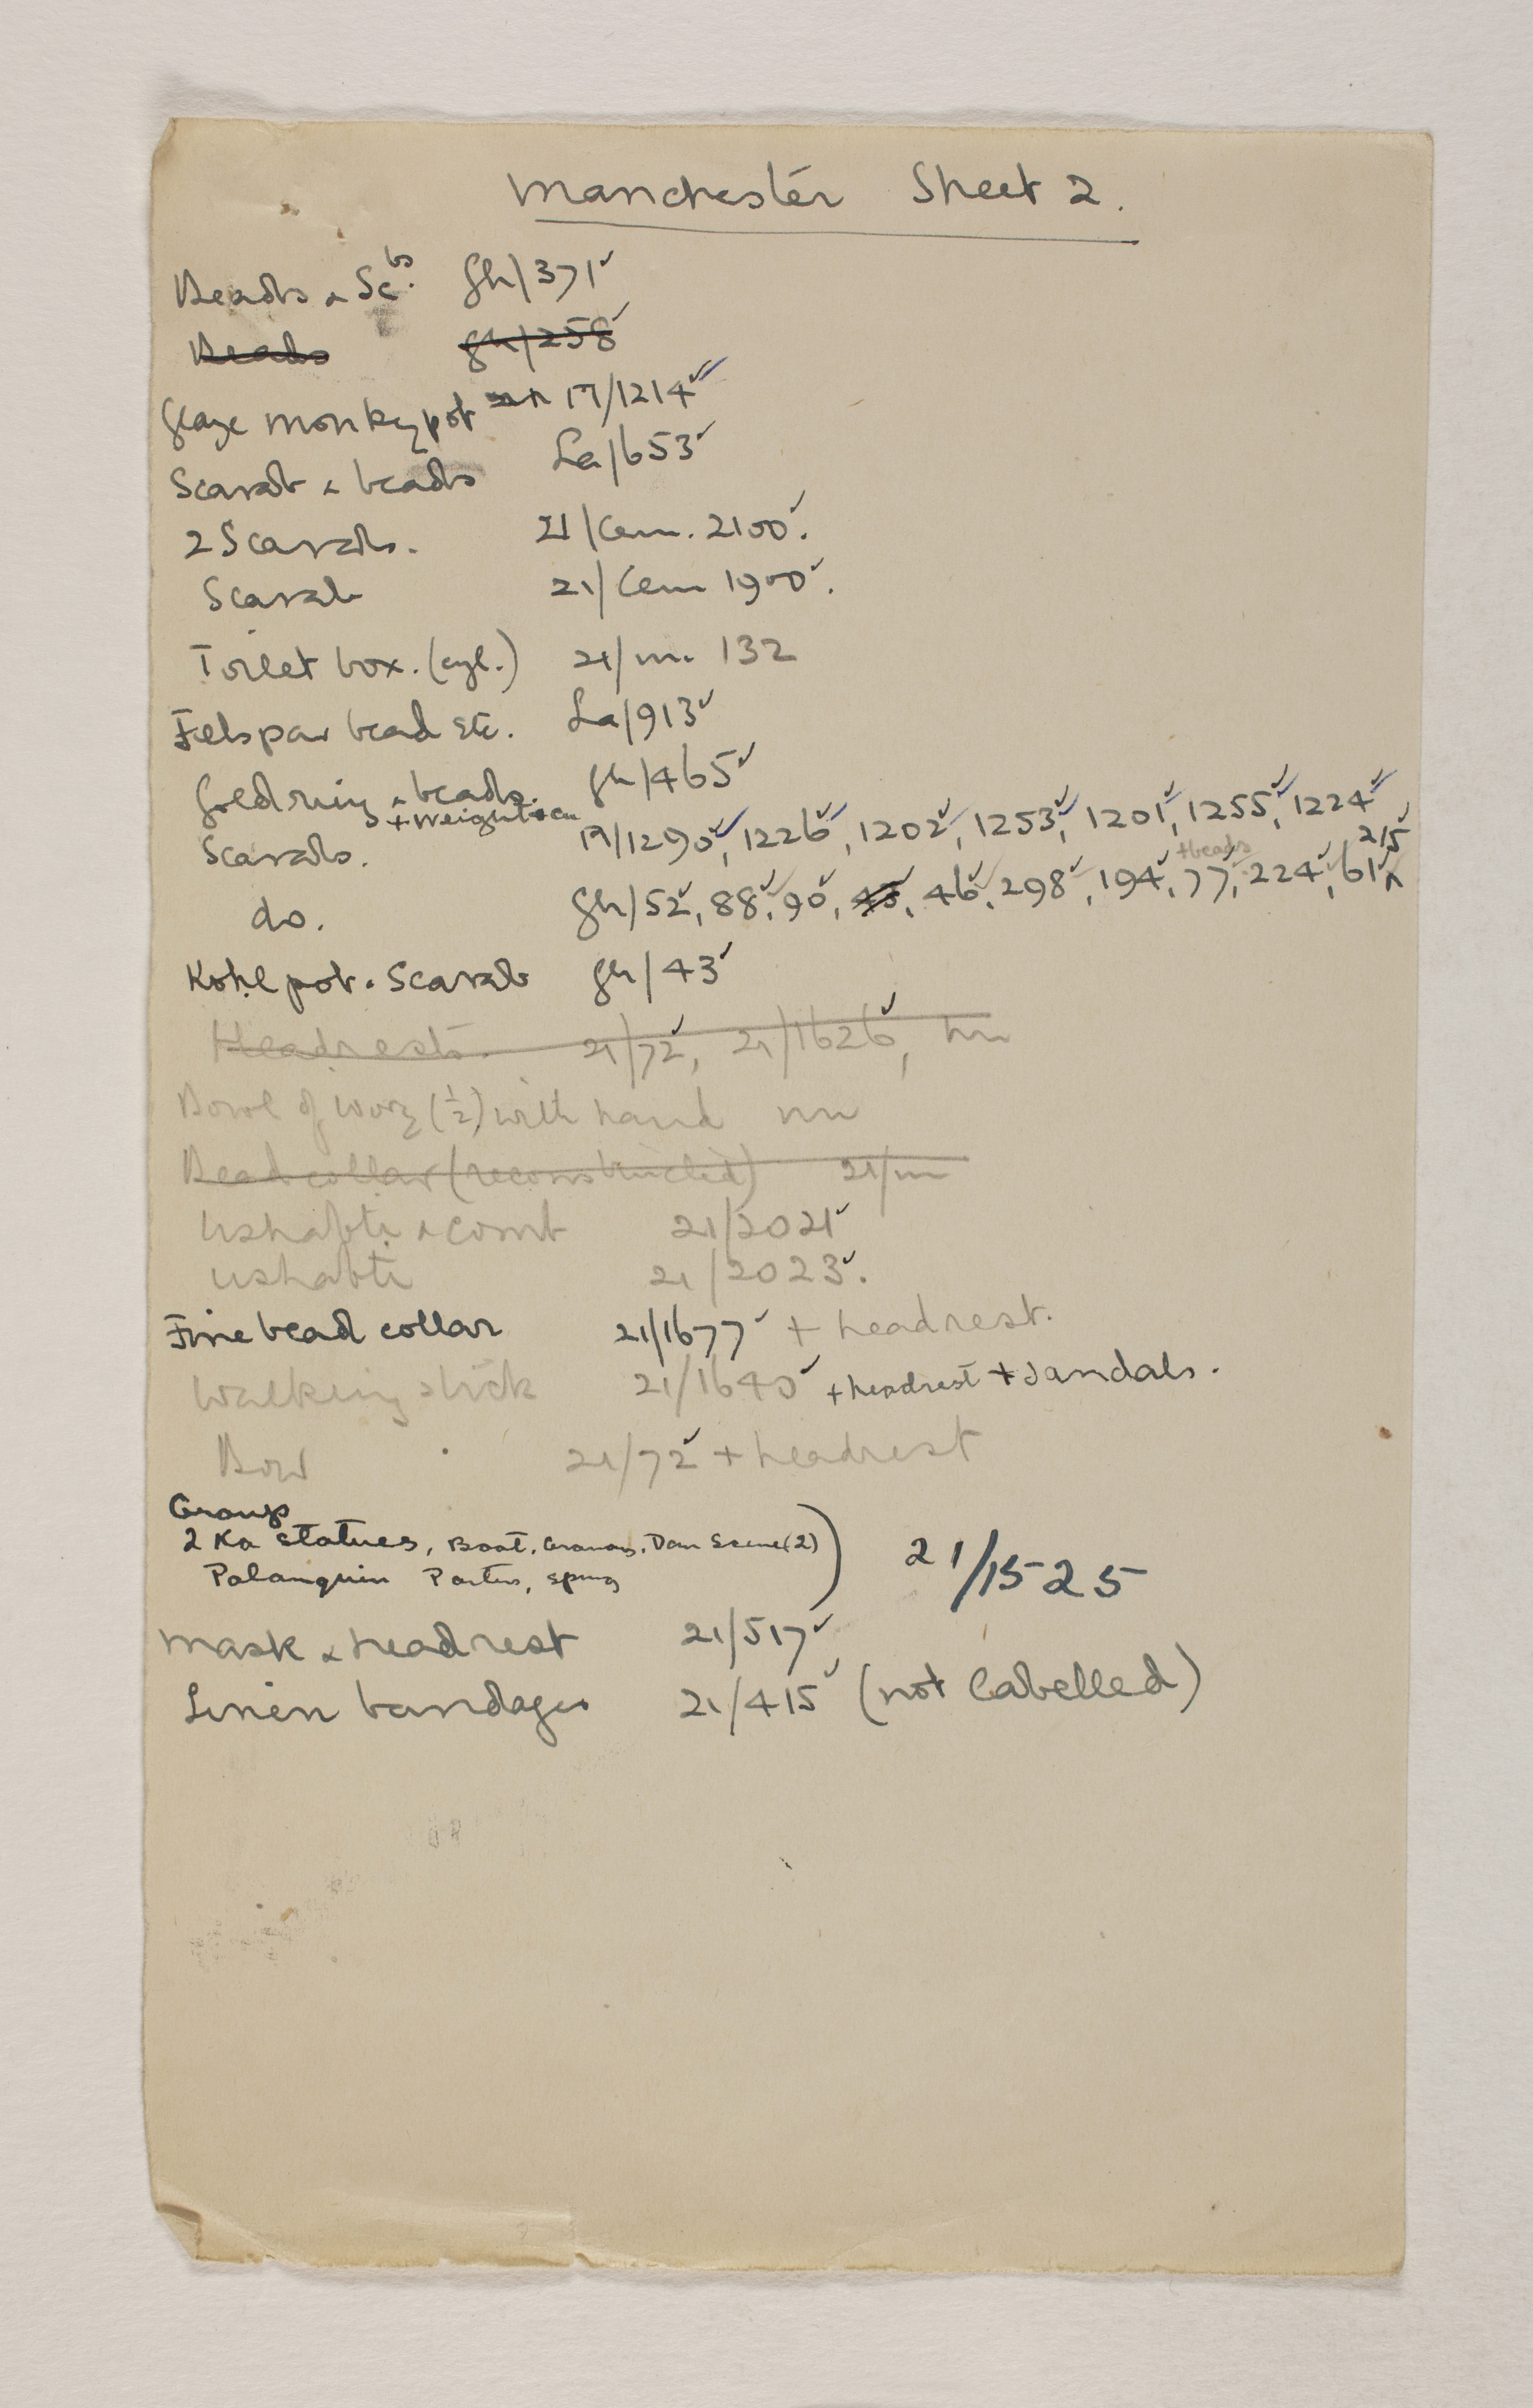 Manchester Sheet 2.
Beads & Scbs. Gh/371✓
Beads Gh/258✓
Glaze monkey pot 17/1214✓
Scarab & beads La/653✓
2 Scarabs. 21/Cem. 2100✓.
Scarab 21/Cem 1900✓.
Toilet box. (cyl.) 21/nn. 132
Felspar bead etc. La/913✓
Gold ring & beads. Gh/465✓
+ Weight
Scarabs. 17/1290✓, 1226✓, 1202✓, 1253✓, 1201✓, 1255✓, 1224✓
+beads 215✓
do. Gh/52✓, 88✓, 90✓, 45, 46✓, 298✓, 194✓, 77✓, 224✓, 61✓
Kohl pot. Scarab Gh/43✓
Headrests. 21/72✓, 21/1626✓, nn
Bowl of ivory (½) with hand nn
Bead collar (reconstructed) 21/nn
Ushabti & comb 21/2021✓
Ushabti 21/2023✓.
Fine bead collar 21/1677✓ + headrest.
Walking stick 21/1640✓ + headrest + sandals.
Bow 21/72✓ + headrest
Group
2 Ka statues, Boat, Granary, Dom Scene (2)
Palanquin Porters, 21/1525
Mask & headrest 21/517✓
Linen bandages 21/415✓ (not labelled)